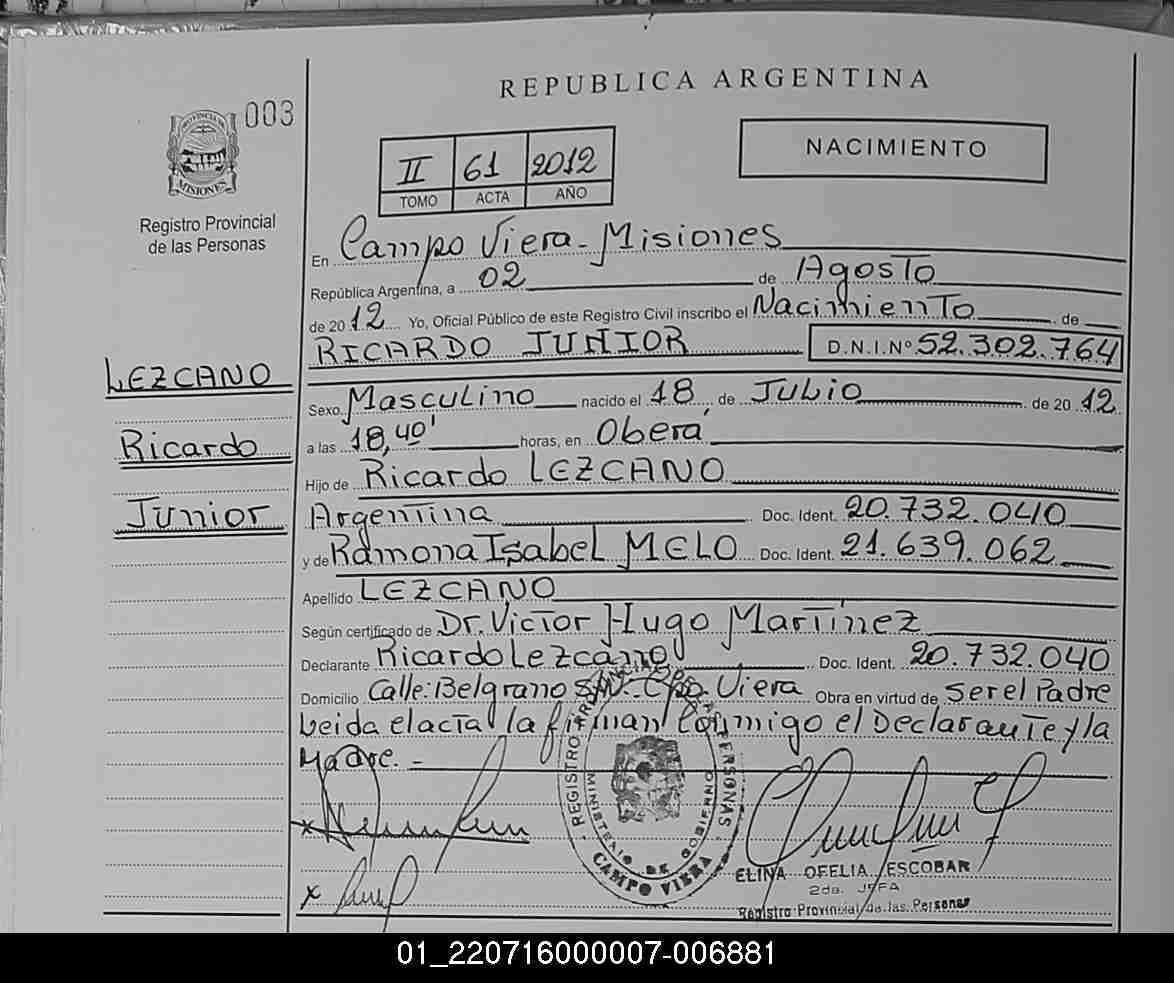 REPUBLICA ARGENTINA
003
PROVINCIA DE
MISIONES
Registro Provincial
de las Personas
NACIMIENTO
II 61 2012
TOMO ACTA AÑO
En Campo Viera - Misiones
República Argentina, a 02 de Agosto
de 2012 Yo, Oficial Público de este Registro Civil inscribo el Nacimiento de
RICARDO JUNIOR D.N.I.Nº 52.302.764
LEZCANO
Ricardo
Junior
Sexo Masculino nacido el 18 de Julio de 2012
a las 18,40' horas, en Oberá
Hijo de Ricardo LEZCANO
Argentina Doc. Ident. 20.732.040
y de Ramona Isabel MELO Doc. Ident. 21.639.062
Apellido LEZCANO
Según certificado de Dr. Victor Hugo Martinez
Declarante Ricardo Lezcano Doc. Ident. 20.732.040
Domicilio Calle: Belgrano S/N. Cpo. Viera Obra en virtud de ser el Padre
Leida el acta la firman Conmigo el Declarante y la
Madre. -
REGISTRO PROVINCIAL DE LAS PERSONAS
MINISTERIO DE GOBIERNO
CAMPO VIERA
ELINA OFELIA ESCOBAR
2da. JEFA
Registro Provincial de las Personas
01_220716000007-006881